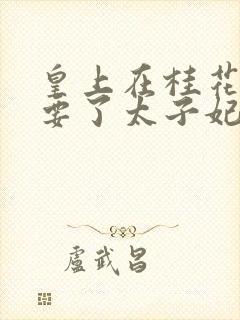 皇上在桂花
要了太子妃
盧武昌